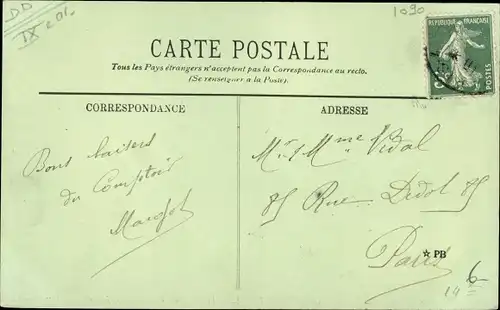 DD
IX e 01.
1090
RÉPUBLIQUE FRANÇAISE
POSTES
CARTE POSTALE
Tous les Pays étrangers n'acceptent pas la Correspondance au recto.
(Se renseigner à la Poste).
CORRESPONDANCE
ADRESSE
Bons baisers
du Comptoir
Margot
Mr & Mme Vidal
85 Rue Didot 85
Paris
☆ PB
14
6